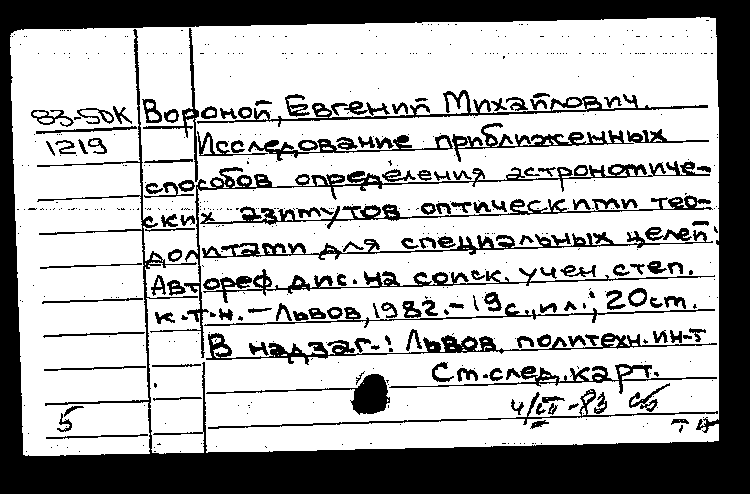 83-5DK Вороной, Евгений Михайлович.
1219 Исследование приближенных
способов определения астрономиче-
ских азимутов оптическими тео-
долитами для специальных целей:
Автореф. дис. на соиск. учен. степ.
к.т.н. — Львов, 1982. - 19 с., ил.; 20 см.
В надзаг.: Львов. политехн. ин-т
См. след. карт.
4/III-83
5